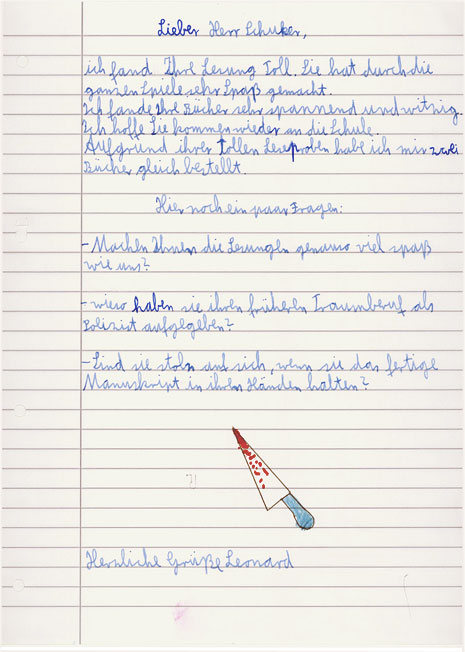 Lieber Herr Schuker,
ich fand Ihre Lesung Toll. Sie hat durch die
ganzen Spiele sehr Spaß gemacht.
Ich fande Ihre Bücher sehr spannend und witzig.
Ich hoffe Sie kommen wieder an die Schule.
Aufgrund ihrer tollen Leseproben habe ich mir zwei
Bücher gleich bestellt.
Hier noch ein paar Fragen:
- Machen Ihnen die Lesungen genauso viel spaß
wie uns?
- wieso haben sie ihren früheren Traumberuf als
Polizist aufgegeben?
- Sind sie stolz auf sich, wenn sie das fertige
Manuskript in ihren Händen halten?
Herzliche Grüße Leonard